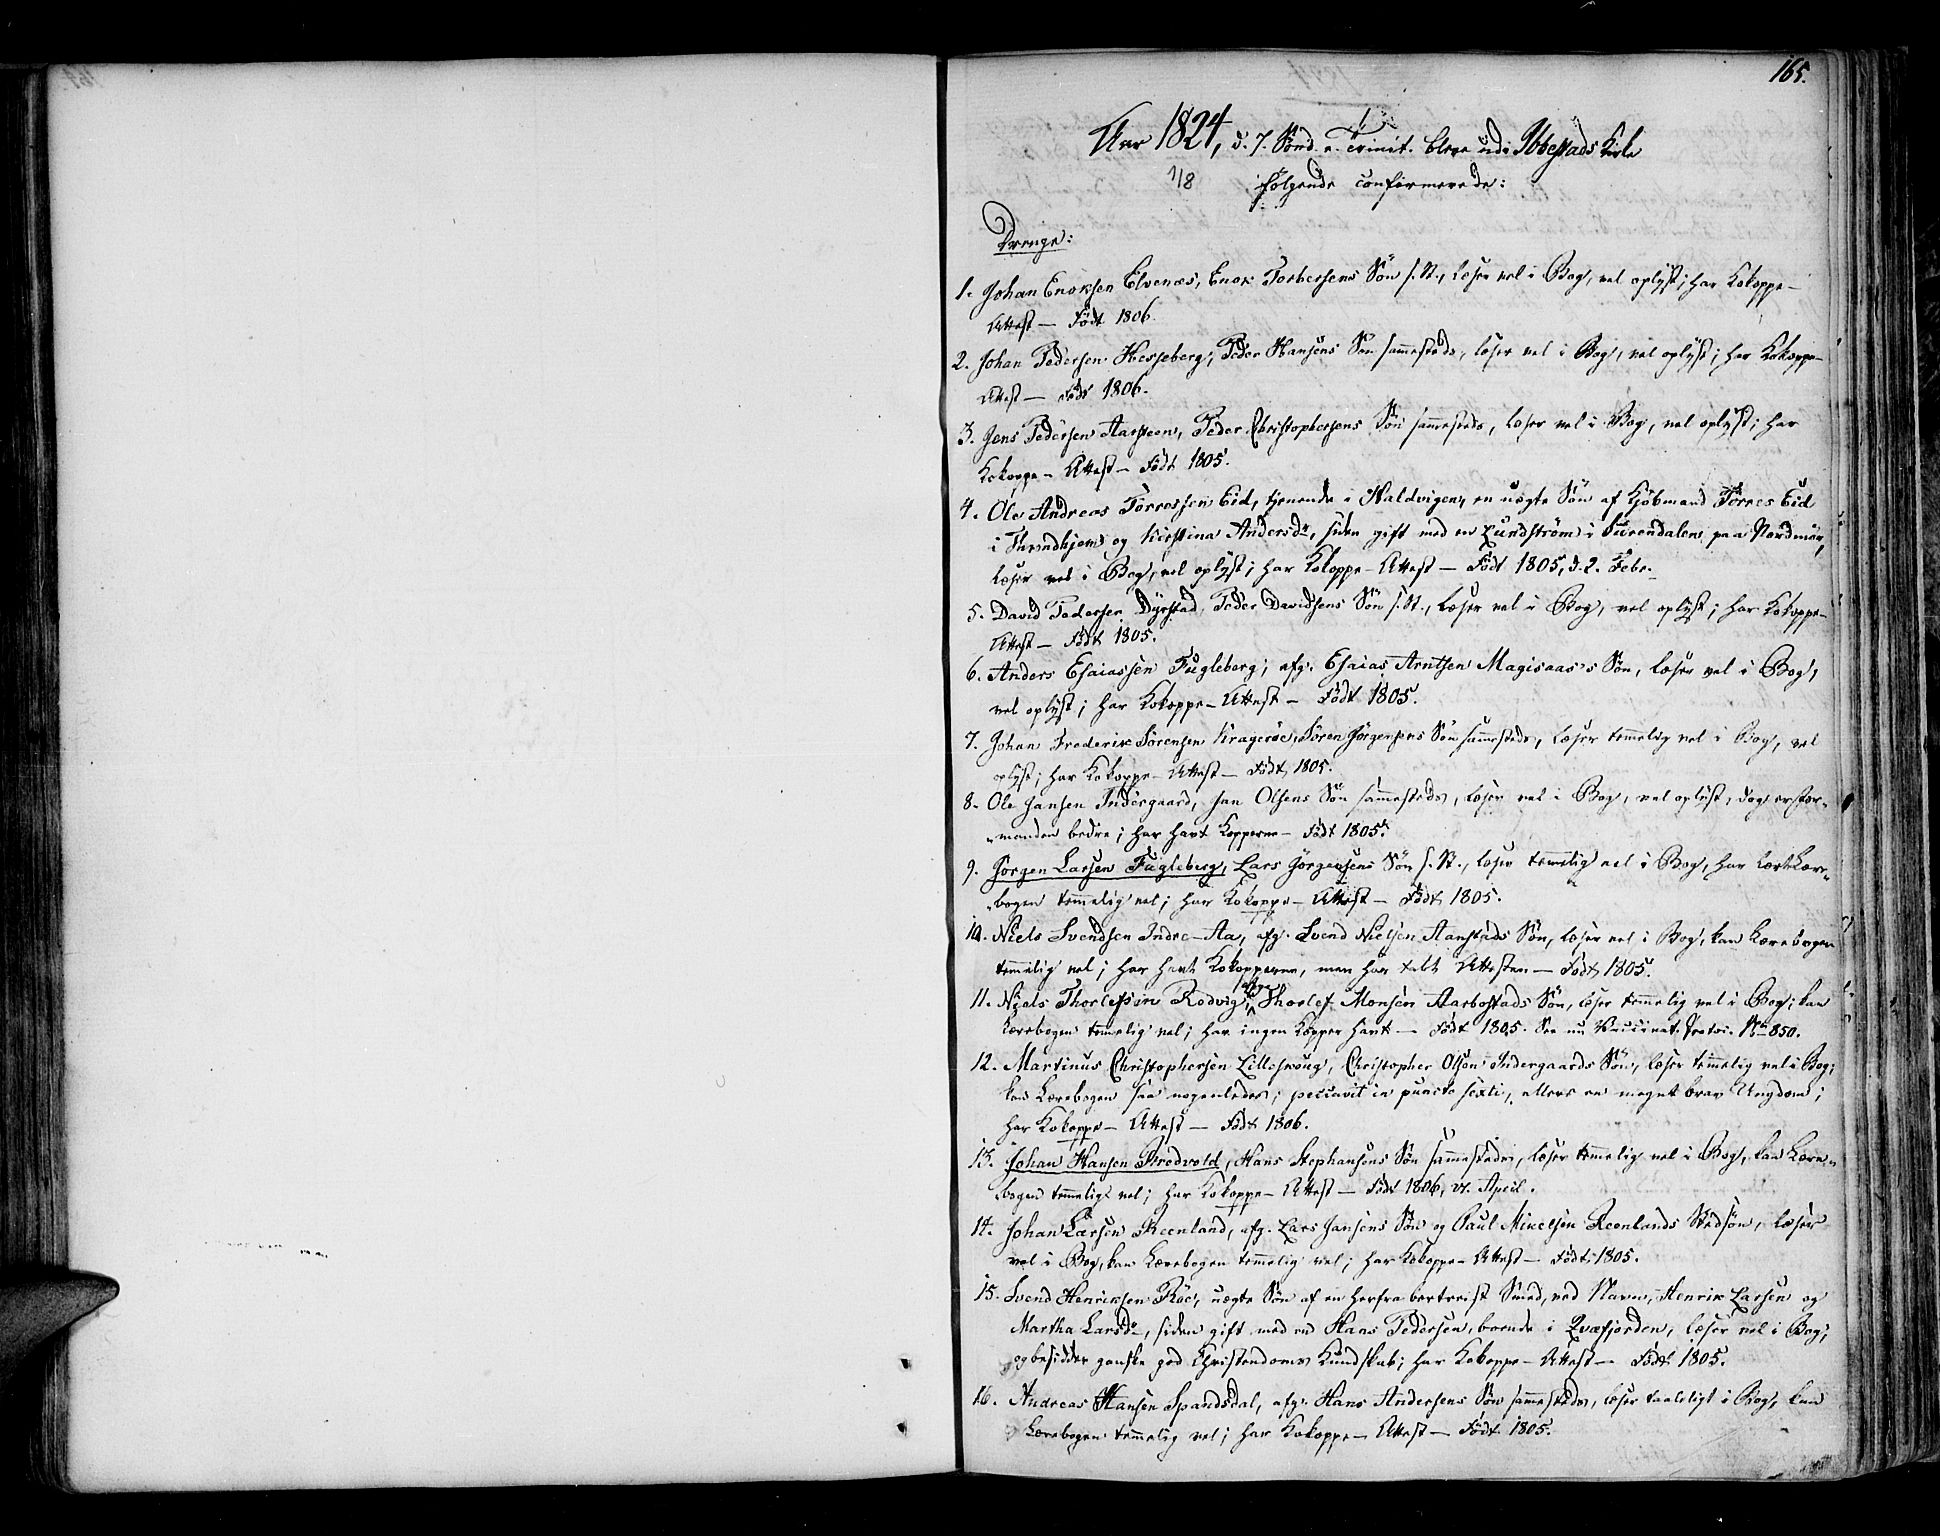 165.
Aar 1824, d. 7. Sönd. e. Trinit. bleve udi Ibbestads Kirke
1/8 følgende confirmerede:
Drenge:
1. Johan Enoksen Elvenæs, Enok Torbersens Sön s. St., læser vel i Bog, vel oplyst; har Kokoppe-
Attest — Födt 1806.
2. Johan Pedersen Hesseberg, Peder Hansens Sön sammesteds, læser vel i Bog, vel oplyst; har Kokoppe-
Attest — Födt 1806.
3. Jens Pedersen Aarsteen, Peder Christophersens Sön sammesteds, læser vel i Bog, vel oplyst; har
Kokoppe-Attest — Födt 1805.
4. Ole Andreas Törressen Eid, tjenende i Haldvigen, en uægte Sön af Kjöbmand Törres Eid
i Throndhjem og Kirstina Andersd., siden gift med en Lundström i Surendalen paa Nordmör,
læser vel i Bog, vel oplyst; har Kokoppe-Attest — Födt 1805, d. 2. Febr.
5. David Pedersen Dyrstad, Peder Davidsens Sön s. St., læser vel i Bog, vel oplyst; har Kokoppe-
Attest — Födt 1805.
6. Anders Esaiassen Fugleberg, afg. Esaias Arntsen Magisaas's Sön, læser vel i Bog,
vel oplyst; har Kokoppe-Attest — Födt 1805.
7. Johan Frederik Sörensen Krageröe, Sören Jörgensens Sön sammesteds, læser temmelig vel i Bog, vel
oplyst; har Kokoppe-Attest — Födt 1805.
8. Ole Jansen Indergaard, Jan Olsens Sön sammesteds, læser vel i Bog, vel oplyst, dog er For-
manden bedre; har havt Kopperne — Födt 1805.
9. Jörgen Larsen Fugleberg, Lars Jörgensens Sön s. St., læser temmelig vel i Bog, har lært Lære-
bogen temmelig vel; har Kokoppe-Attest — Födt 1805.
10. Niels Svendsen Indre-Aa, afg. Svend Nielsen Aanstads Sön, læser vel i Bog, kan Lærebogen
temmelig vel; har havt Kokopperne, men har tabt Attesten — Födt 1805.
11. Niels Thorlefsen Rodvig, afg. Thorlef Monsen Aarbostads Sön, læser temmelig vel i Bog, kan
Lærebogen temmelig vel; har ingen Kopper havt — Födt 1805. See nu Vaccinat. Protoc. No 850.
12. Martinus Christophersen Lilleskoug, Christopher Olsen Indergaards Sön, læser temmelig vel i Bog;
kan Lærebogen saa nogenledes; peccavit in puncto sexti, ellers en meget brav Ungdom;
har Kokoppe-Attest — Födt 1806.
13. Johan Hansen Bredvold, Hans Stephansens Sön sammesteds, læser temmelig vel i Bog, kan Lære-
bogen temmelig vel; har Kokoppe-Attest — Födt 1806, April.
14. Johan Larsen Reenland, afg. Lars Jansens Sön og Paul Mikelsen Reenlands Stedsön, læser
vel i Bog, kan Lærebogen temmelig vel; har Kokoppe-Attest — Födt 1805.
15. Svend Henriksen Röe, uægte Sön af en herfra bortreist Smed, ved Navn, Henrik Larsen og
Martha Larsd., siden gift med en Hans Pedersen, boende i Qvæfjorden, læser vel i Bog,
og besidder ganske god Christendoms Kundskab; har Kokoppe-Attest — Födt 1805.
16. Andreas Hansen Spandsdal, afg. Hans Andersens Sön sammesteds, læser taaleligt i Bog, kan
Lærebogen temmelig vel; har Kokoppe-Attest — Födt 1805.